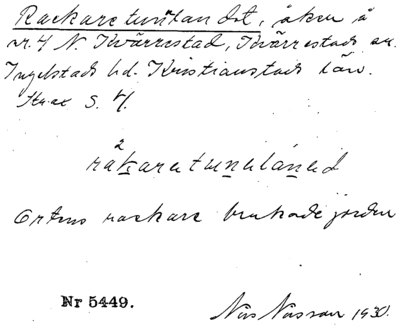 Rackaretunnlandet, åker å
nr. 4 N. Kvärrestad, Kvärrestads sn.
Ingelstads hd. Kristianstads län.
Ekon. S. 4.
2
rakaretunelaned
Ortens rackare brukade jorden
Nr 5449.
Nils Nilsson 1930.